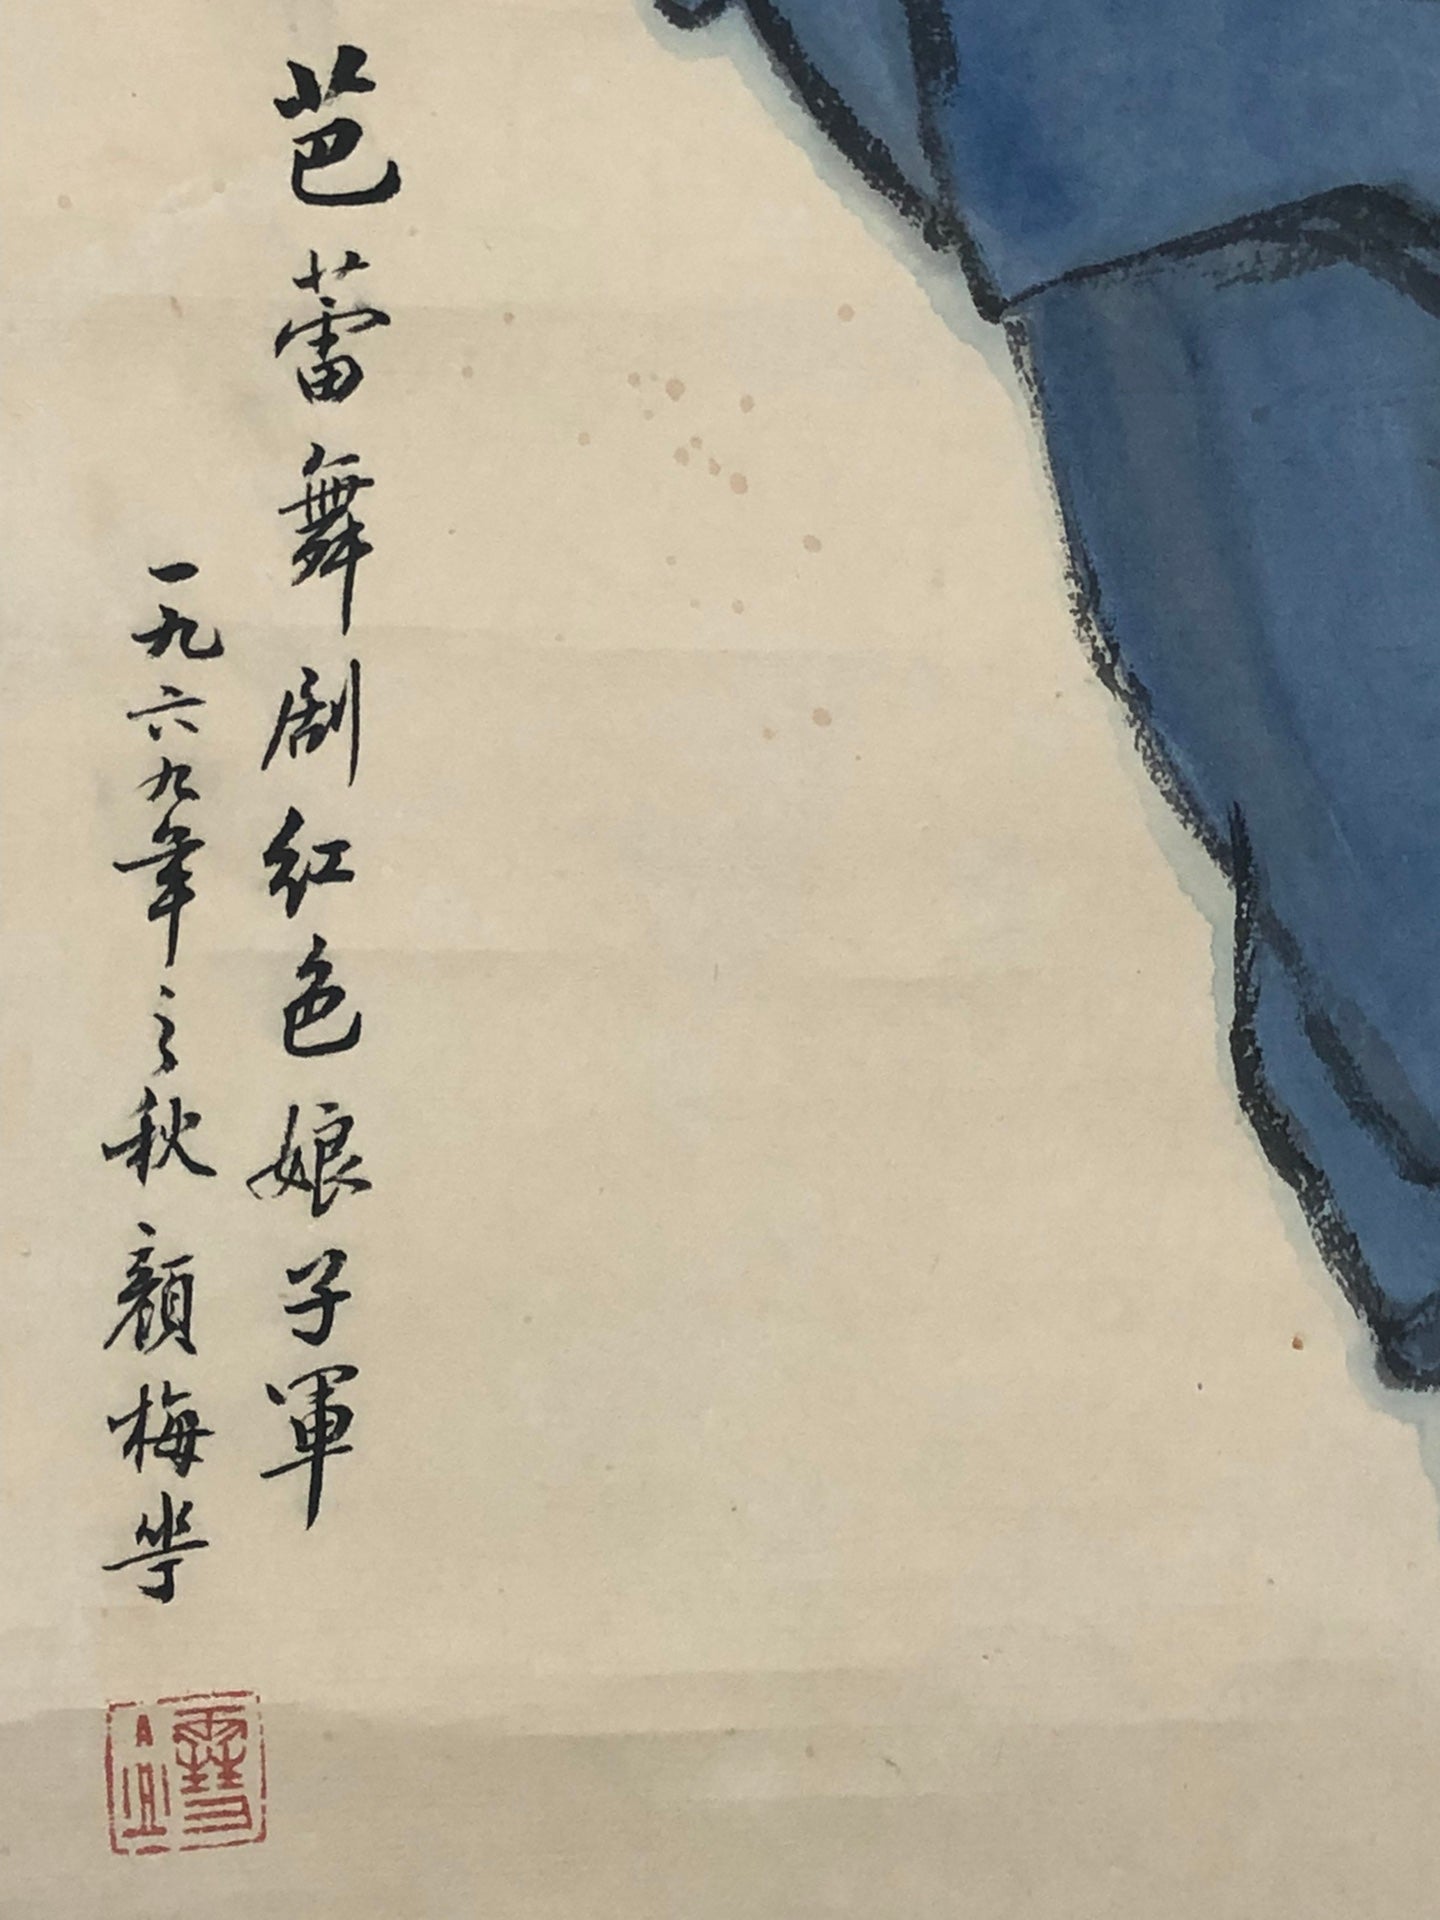 芭蕾舞剧红色娘子軍
一九六九年之秋顏梅華